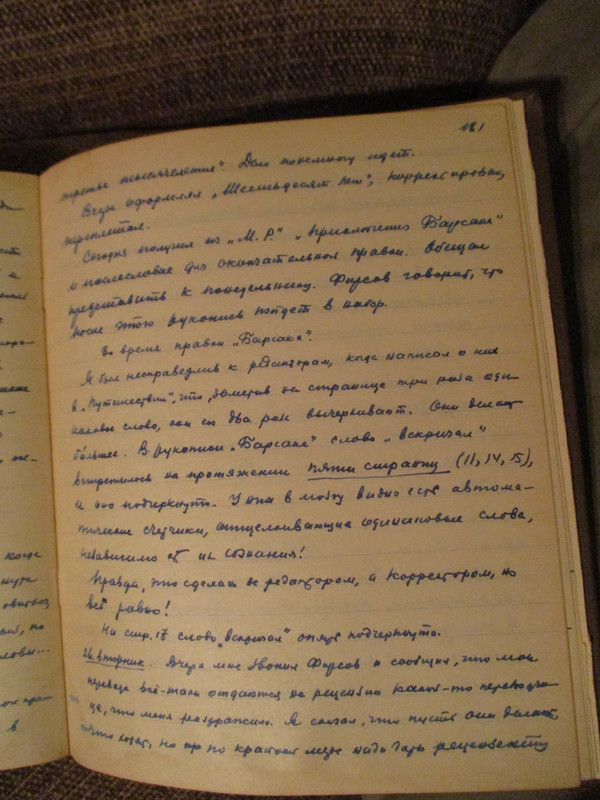 181
третье тысячелетие". Дело понемногу идет.
Вчера оформлял „Шестьдесят лет", корректировал,
переплетал.
Сегодня получил из „М. Р." „Приключения Барсака"
и послесловие для окончательной правки. Обещал
представить к понедельнику. Фирсов говорит, что
после этого рукопись пойдет в набор.
Во время правки „Барсака".
Я был несправедлив к редакторам, когда написал о них
в „Путешествии", что, заметив на странице три раза оди-
наковое слово, они его два раза вычеркивают. Они делают
больше. В рукописи „Барсака" слово „вскричал"
встретилось на протяжении пяти страниц (11, 14, 15),
и оно подчеркнуто. У них в мозгу видно есть автома-
тические счетчики, отщелкивающие одинаковые слова,
независимо от их сознания!
Правда, это сделано не редактором, а корректором, но
всё равно!
На стр. 17 слово „вскричал" опять подчеркнуто.
26, вторник. Вчера мне звонил Фирсов и сообщил, что мои
переводы всё-таки отдаются на рецензию какой-то переводчи-
це, что меня раздражило. Я сказал, что пусть они делают
что хотят, но по крайней мере надо дать рецензенту
когда
в